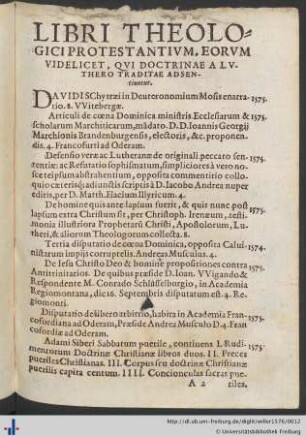 LIBRI THEOLO-
GICI PROTESTANTIVM, EORVM
VIDELICET, QVI DOCTRINAE A LV-
THERO TRADITAE ADSEN-
tiuntur.
DAVIDIS Chytræi in Deuteronomium Mosis enarra- 1575.
tio. 8. VVitebergæ.
Articuli de cœna Dominica ministris Ecclesiarum & 1575.
scholarum Marchiticarum, mādato. D. D. Ioannis Georgij
Marchionis Brandenburgensis, electoris, &c. proponen-
dis. 4. Francofurti ad Oderam.
Defensio veræ ac Lutheranæ de originali peccato sen- 1575.
tentiæ: ac Refutatio sophismatum, simpliciores à vero no-
sce teipsum abstrahentium, opposita commentitio collo-
quio cæterisq; adiunctis scriptis à D. Iacobo Andrea nuper
editis, per D. Matth. Flacium Illyricum. 4.
De homine quis ante lapsum fuerit, & quis nunc post 1575.
lapsum extra Christum sit, per Christoph. Irenæum, testi-
monia illustriora Prophetarū Christi, Apostolorum, Lu-
theri, & aliorum Theologorum collecta. 8.
Tertia disputatio de cœna Dominica, opposita Calui- 1574.
nistarum impijs corruptelis. Andreas Musculus. 4.
De Iesu Christo Deo & homine propositiones contra 1575.
Antitrinitarios. De quibus præside D. Ioan. VVigando &
Respondente M. Conrado Schlüsselburgio, in Academia
Regiomontana, diais. Septembris disputatum est. 4. Re-
giomonti.
Disputatio de libero arbitrio, habita in Academia Fran- 1575.
cofordiana ad Oderam, Præside Andrea Musculo D. 4. Fran
cofordiæ ad Oderam.
Adami Siberi Sabbatum puerile, continens I. Rudi- 1575.
mentorum Doctrinæ Christianæ libros duos. II. Preces
pueriles Christianas. III. Corpus seu doctrinæ Christianæ
puerilis capita centum. IIII. Conciunculas sacras pue-
A 2 riles.
http://dl.ub.uni-freiburg.de/diglit/willer1576/0012
© Universitätsbibliothek Freiburg